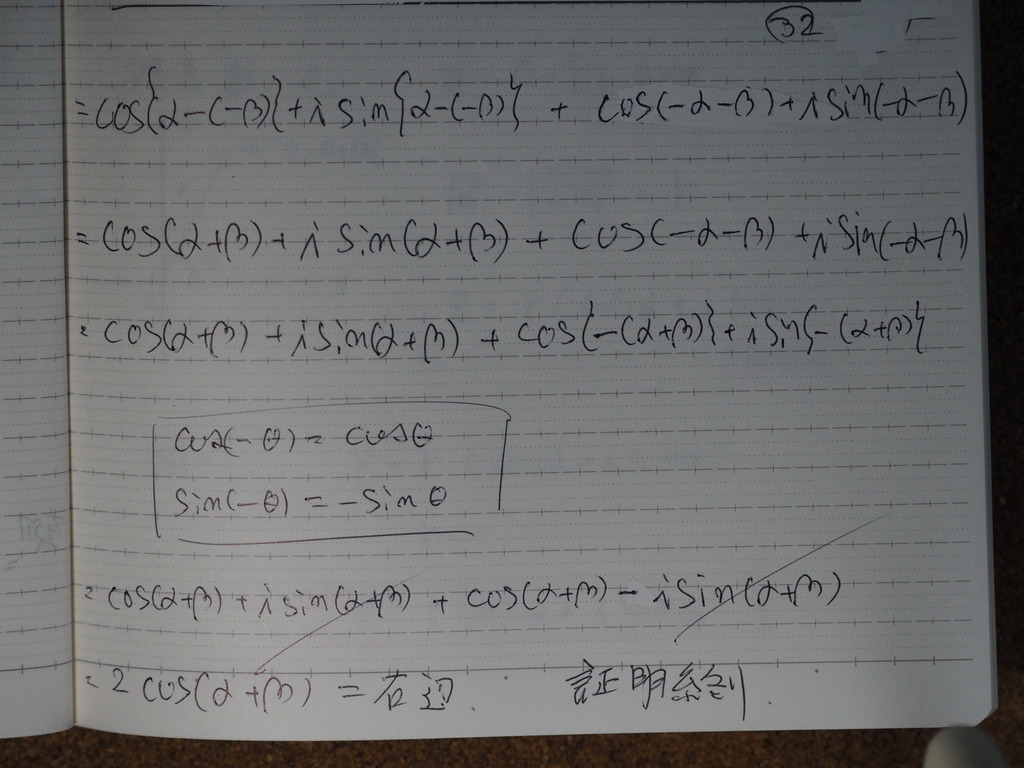 32
=cos{α-(-β)}+i sin{α-(-β)} + cos(-α-β)+i sin(-α-β)
=cos(α+β)+i sin(α+β) + cos(-α-β) +i sin(-α-β)
=cos(α+β) +i sin(α+β) + cos{-(α+β)}+i sin{-(α+β)}
cos(-θ)=cosθ
sin(-θ)=-sinθ
=cos(α+β)+i sin(α+β) + cos(α+β)-i sin(α+β)
=2 cos(α+β) =右辺. 証明終り.